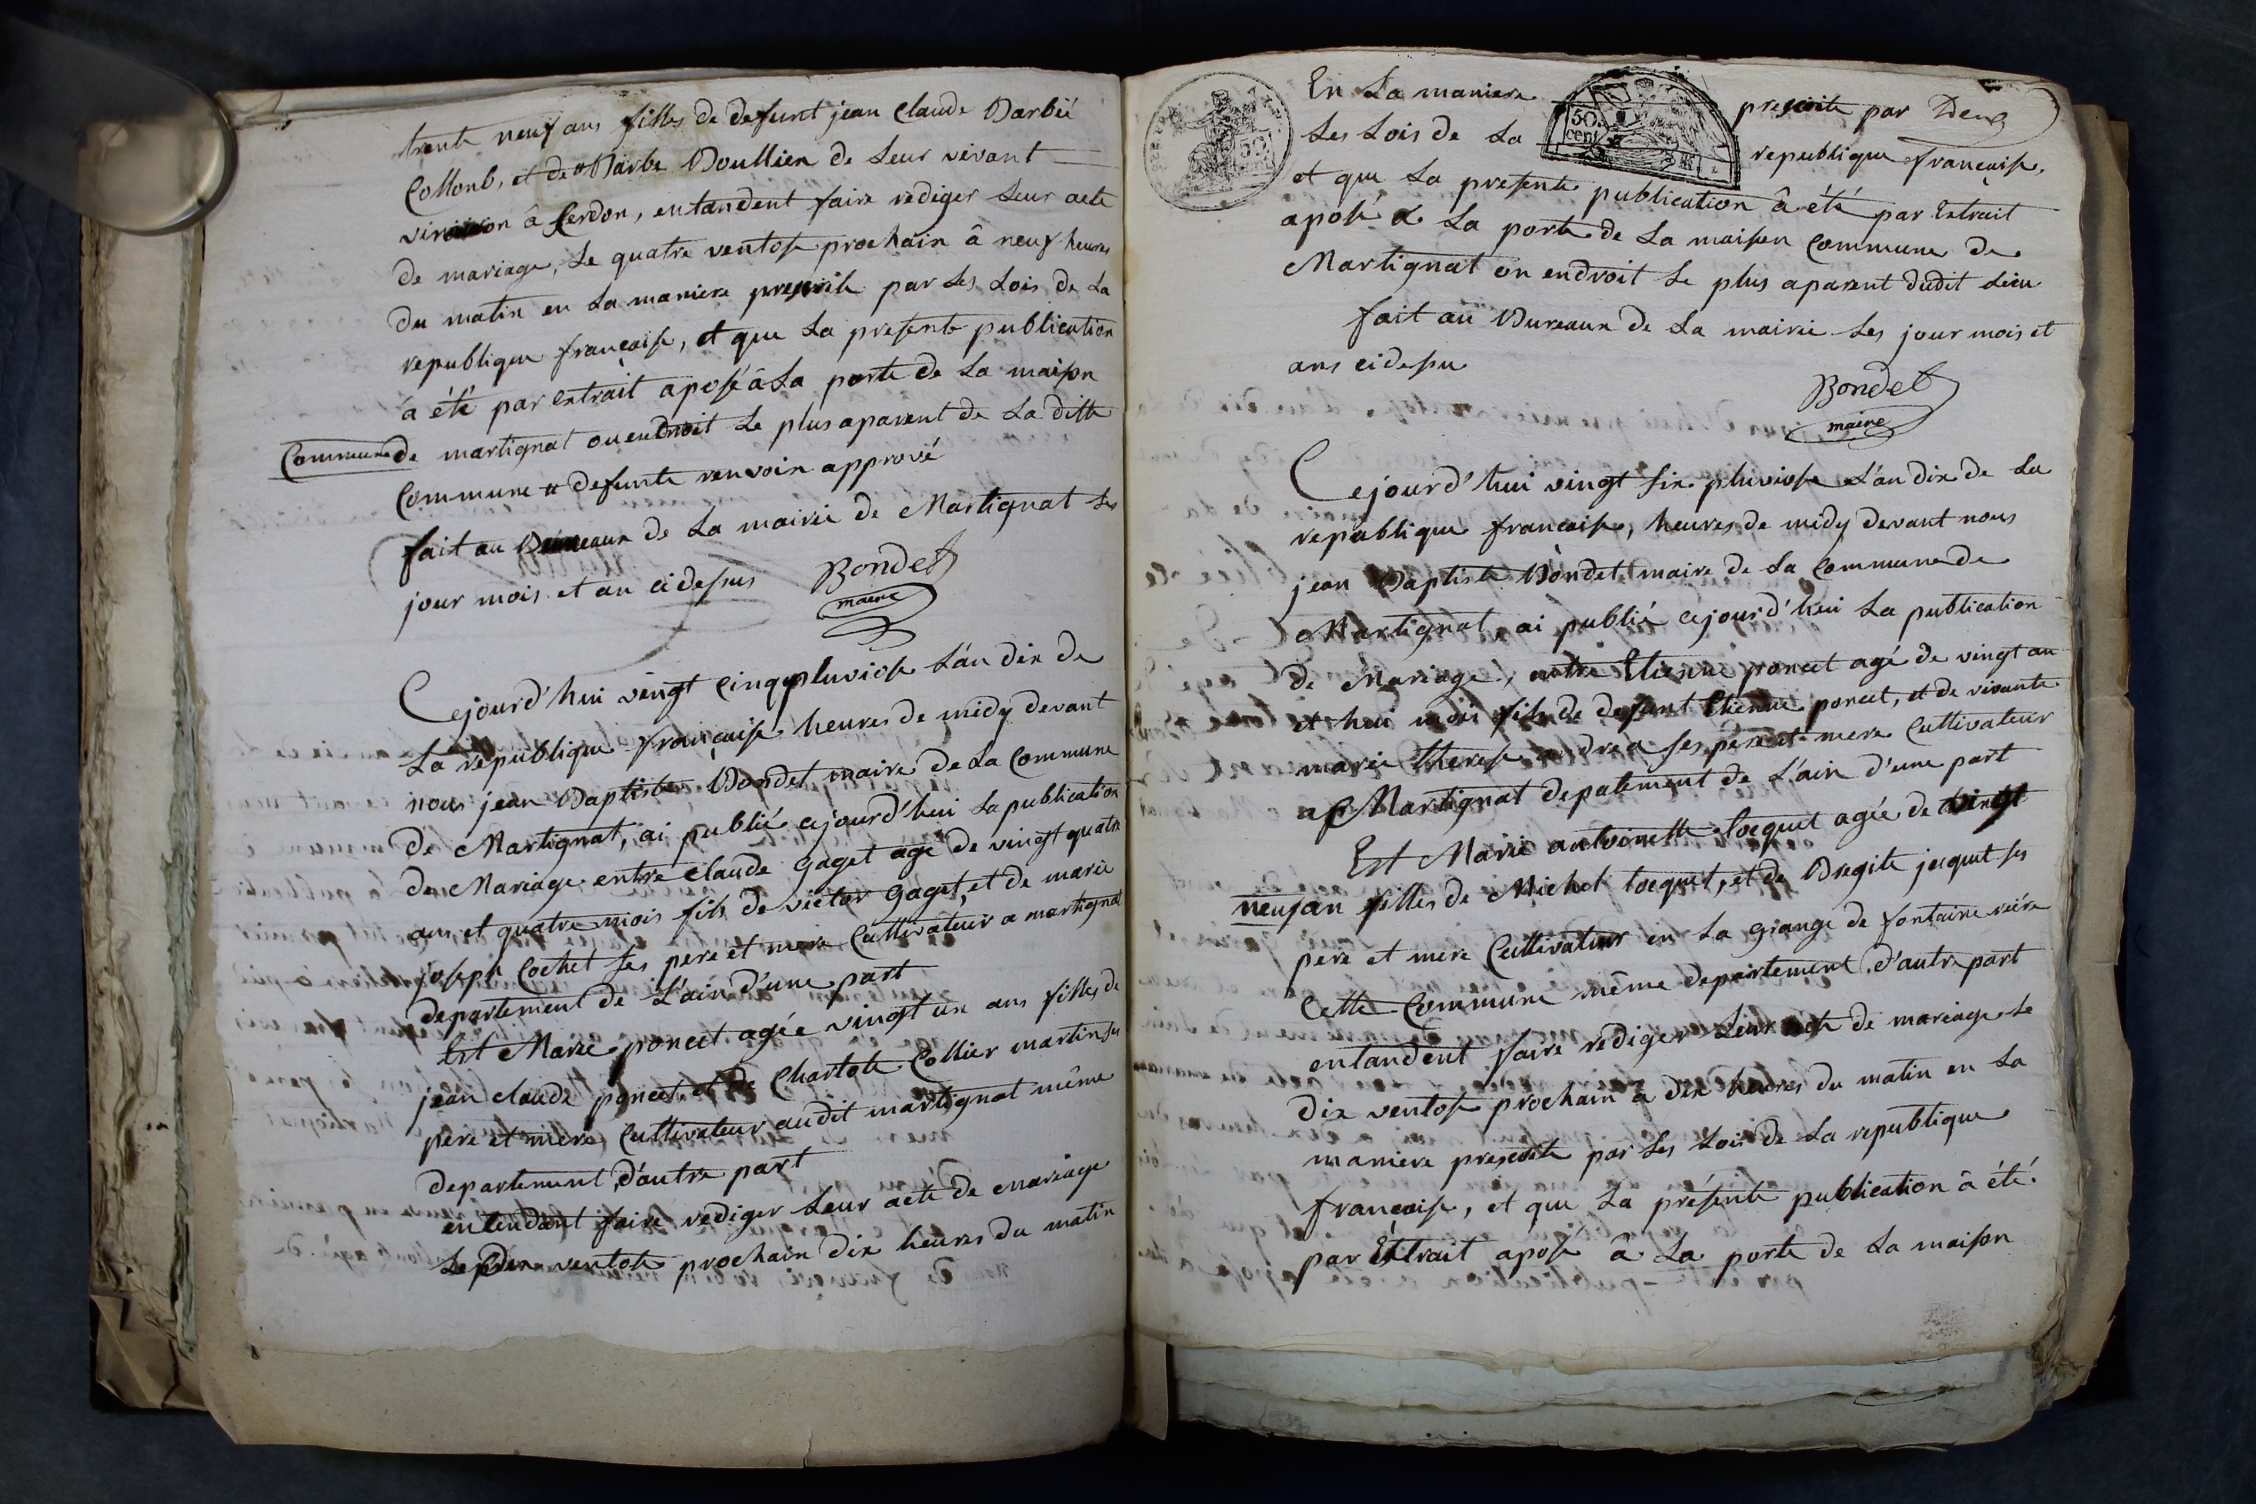 trente neuf ans filles de defunt jean Claude Barbié
Collonb, et de # Barbe Boullier de Leur vivant
vivion â Cerdon, entandent faire rediger Leur acte
de mariage, Le quatre ventose prochain â neuf heures
du matin en La maniere prescrite par Les Lois de La
republique francaise, et que La presente publication
â été par extrait aposé â La porte de La maison
Commune de martignat ou endroit Le plus aparent de La ditte
Commune # defunte renvoir apprové
fait au Bureaux de La mairie de Martignat Les
jour mois et an ci desus
Bondet
maire
Cejourd'hui vingt cinq pluviose L'an dix de
La republique francaise heures de midy devant
nous jean Baptiste Bondet maire de La Commune
de Martignat, ai publié cejourd'hui La publication
de Mariage entre Claude gaget agé de vingt quatre
ans et quatre mois fils de victor gaget, et de marie
joseph Cochet Ses pere et mere Cultivateur a martignat
departement de L'ain d'une part
Est Marie poncet agée vingt un ans filles de
jean claude poncet, et de Charlote Collier martin Ses
pere et mere Cultivateur audit martignat même
departement, d'autre part
entendant faire rediger Leur acte de Mariage
Le dix ventose prochain dix heures du matin
En La maniere prescrite par
50.
cent
Les Lois de La republique francaise,
et que La presente publication â été par Extrait
aposé a La porte de La maison Commune de
Martignat on endroit Le plus aparent dudit Lieu
fait au Bureaux de La mairie Les jour mois et
ans cidesu
Bondet
maire
Cejourd'hui vingt six pluviose L'an dix de La
republique francaise, heures de midy devant nous
jean Baptiste Bondet maire de La Commune de
Martignat, ai publié cejourd'hui La publication
de Mariage, entre Etienne poncet agé de vingt an
et hui mois fils de defunt Etienne poncet, et de vivante
marie therese andrea Ses pere et mere Cultivateur
Martignat depatement de L'ain d'une part
Est Marie antoinette tocquet agée de vingt
neuf an filles de Michel tocquet, et de Bregite jacquet Ses
pere et mere Cultivateur en La grange de fontaine
Cette Commune même departement, d'autre part
entandent faire rediger Leur acte de mariage Le
dix ventose prochain â dix heures du matin en La
maniere prescrite par Les Lois de La republique
francaise, et que La présente publication â été
par Extrait aposé â La porte de La maison